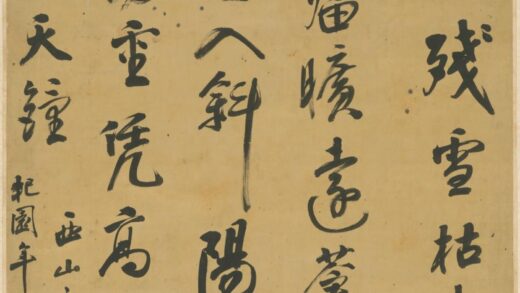 殘雪枯
曠遠
入斜陽
重凭高
天鐘
西山
杞園年